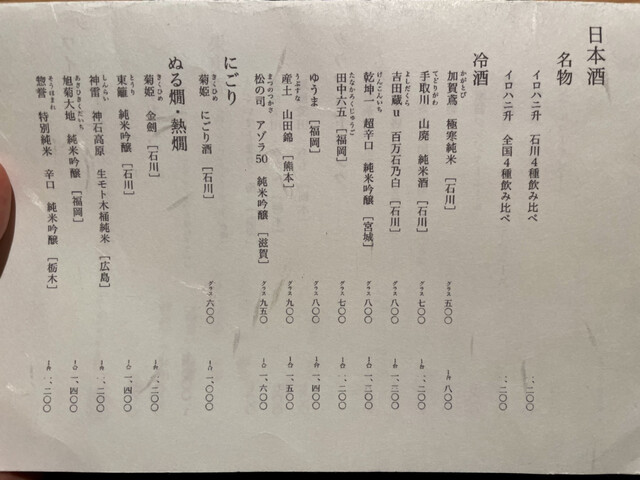 日本酒
名物
イロハニ升 石川4種飲み比べ 一、二〇〇
イロハニ升 全国4種飲み比べ 一、二〇〇
冷酒
かがとび
加賀鳶 極寒純米 [石川] グラス 五〇〇 一合 八〇〇
てどりがわ
手取川 山廃 純米酒 [石川] グラス 七〇〇 一合 一、二〇〇
よしだくら
吉田蔵u 百万石乃白 [石川] グラス 八〇〇 一合 一、三〇〇
けんこんいち
乾坤一 超辛口 純米吟醸 [宮城] グラス 八〇〇 一合 一、三〇〇
たなかろくじゅうご
田中六五 [福岡] グラス 七〇〇 一合 一、二〇〇
ゆうま [福岡] グラス 八〇〇 一合 一、四〇〇
うぶすな
産土 山田錦 [熊本] グラス 九〇〇 一合 一、五〇〇
まつのつかさ
松の司 アゾラ50 純米吟醸 [滋賀] グラス 九五〇 一合 一、六〇〇
にごり
きくひめ
菊姫 にごり酒 [石川] グラス 六〇〇 一合 一、〇〇〇
ぬる燗・熱燗
きくひめ
菊姫 金劔 [石川] 一合 一、二〇〇
とうり
東籬 純米吟醸 [石川] 一合 一、四〇〇
しんらい
神雷 神石高原 生モト木桶純米 [広島] 一合 一、二〇〇
あさひきくだいち
旭菊大地 純米吟醸 [福岡] 一合 一、四〇〇
そうほまれ
惣誉 特別純米 辛口 純米吟醸 [栃木] 一合 一、二〇〇